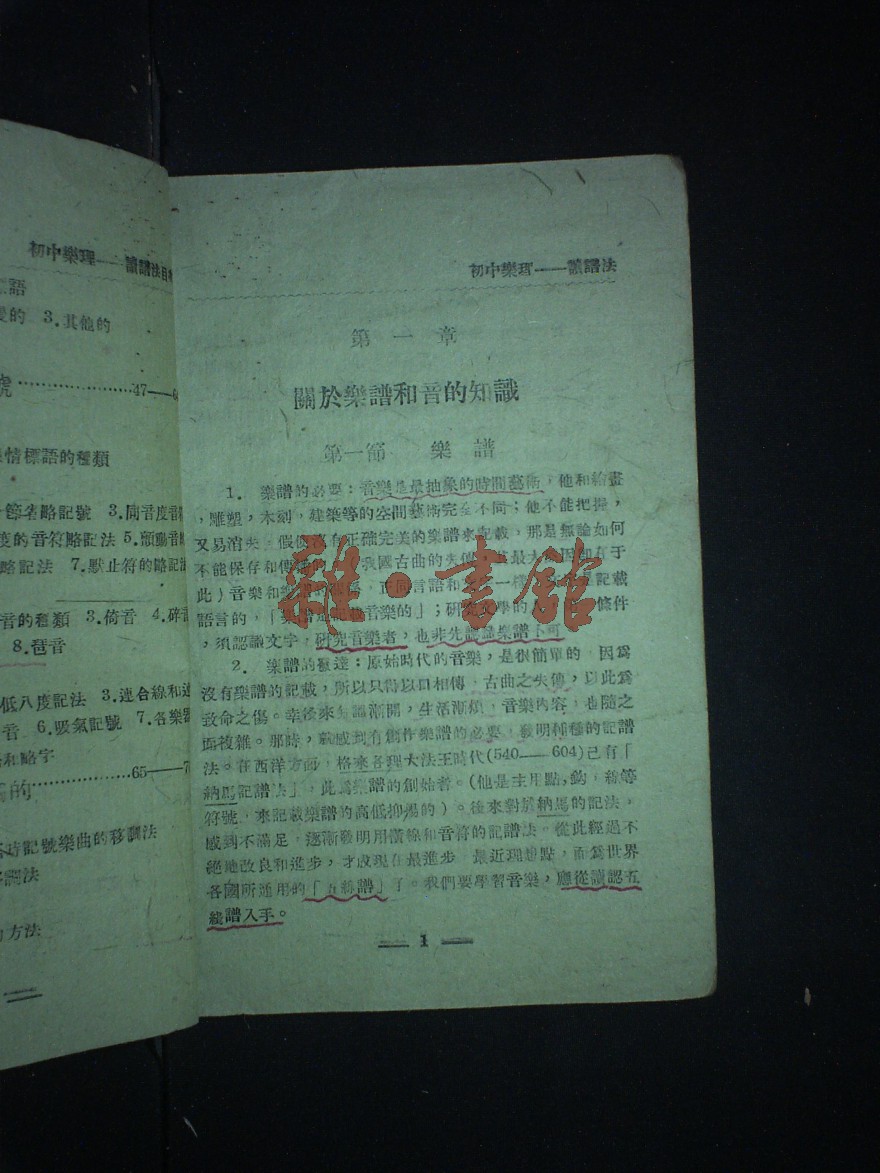 初中樂理——讀譜法目
語
的 3.其他的
號………………47——
情標語的種類
節省略記號 3.同音度音
度的音符略記法 5.顫動音
略記法 7.默止符的略記法
音的種類 3.倚音 4.碎音
8.琶音
低八度記法 3.連合線和連
音 6.吸氣記號 7.各樂
和略字
的………………65——7
記號樂曲的移調法
調法
方法
初中樂理——讀譜法
第一章
關於樂譜和音的知識
第一節 樂譜
1. 樂譜的必要:音樂是最抽象的時間藝術,他和繪畫
,雕塑,木刻,建築等的空間藝術完全不同;他不能把握,
又易消失,假使沒有正確完美的樂譜來記載,那是無論如何
不能保存和傳達的。(我國古曲的失傳,其最大原因即有于
此)音樂和樂譜的關係,正同言語和文字一樣,記載
語言的,「樂譜是記載音樂的」;研究文學的條件
,須認識文字,研究音樂者,也非先認識樂譜不可。
2. 樂譜的發達:原始時代的音樂,是很簡單的,因為
沒有樂譜的記載,所以只得以口相傳,古曲之失傳,以此為
致命之傷。幸後來知識漸開,生活漸煩,音樂內容,也隨之
而複雜。那時,就感到有創作樂譜的必要,發明種種的記譜
法。在西洋方面,格來各理大法王時代(540——604)已有「
納馬記譜法」,此為樂譜的創始者。(他是主用點,鈎,線等
符號,來記載樂譜的高低抑揚的)。後來對於納馬的記法,
感到不滿足,逐漸發明用橫線和音符的記譜法。從此經過不
絕地改良和進步,才成現在最進步,最近理想點,而為世界
各國所通用的「五線譜」了。我們要學習音樂,應從讀認五
綫譜入手。
—— 1 ——
雜·書館